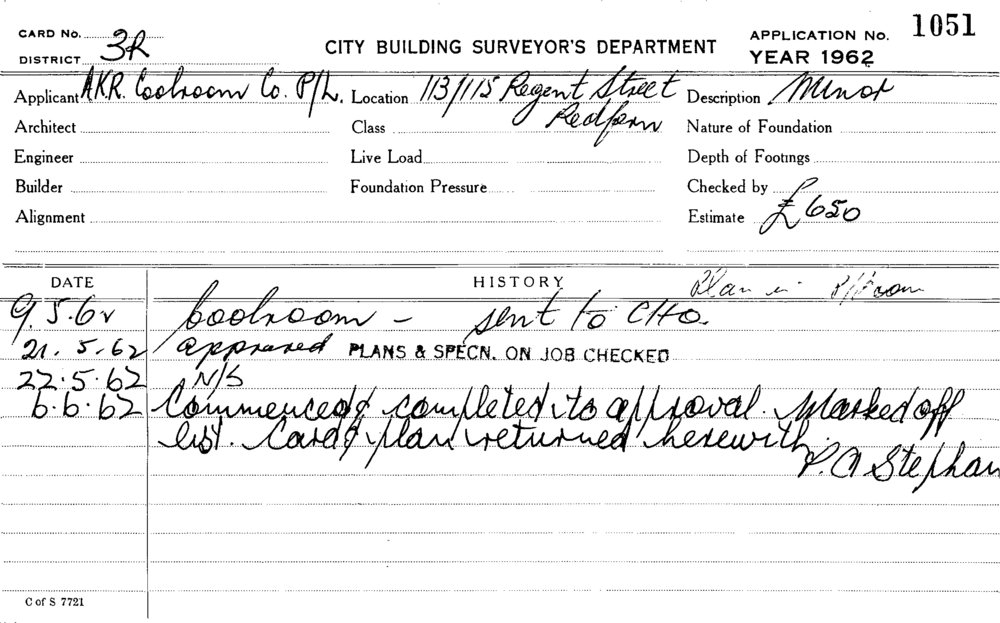 CARD No.
DISTRICT 3R
CITY BUILDING SURVEYOR'S DEPARTMENT
APPLICATION No. 1051
YEAR 1962
Applicant A.K.R. Coolroom Co. P/L. Location 113/115 Regent Street Redfern Description Minor
Architect Class Nature of Foundation
Engineer Live Load Depth of Footings
Builder Foundation Pressure Checked by
Alignment Estimate £650
DATE HISTORY Plan in P/Room
9.5.62 Coolroom - sent to CHO.
21.5.62 approved PLANS & SPECN. ON JOB CHECKED
22.5.62 N/S
6.6.62 Commenced & completed to approval. Marked off
list. Card & plan returned herewith.
P. A Stephan
C of S 7721